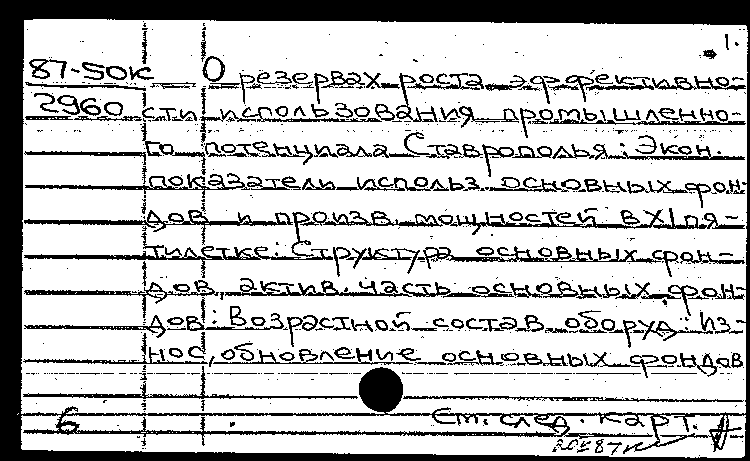 1.
87-50К О резервах роста эффективно-
2960 сти использования промышленно-
го потенциала Ставрополья: Экон.
показатели использ. основных фон-
дов и произв. мощностей в XI пя-
тилетке: Структура основных фон-
дов, актив. часть основных фон-
дов: Возрастной состав оборуд: Из-
нос, обновление основных фондов
6 См. след. карт.